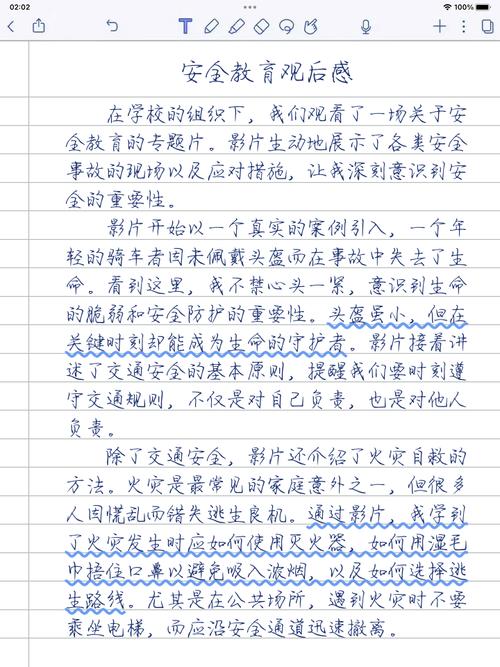 02:02
100%
安全教育观后感
在学校的组织下，我们观看了一场关于安
全教育的专题片。影片生动地展示了各类安全
事故的现场以及应对措施，让我深刻意识到安
全的重要性。
影片开始以一个真实的案例引入，一个年
轻的骑车者因未佩戴头盔而在事故中失去了生
命。看到这里，我不禁心头一紧，意识到生命
的脆弱和安全防护的重要性。头盔虽小，但在
关键时刻却能成为生命的守护者。影片接着讲
述了交通安全的基本原则，提醒我们要时刻遵
守交通规则，不仅是对自己负责，也是对他人
负责。
除了交通安全，影片还介绍了火灾自救的
方法。火灾是最常见的家庭意外之一，但很多
人因慌乱而错失逃生良机。通过影片，我学到
了火灾发生时应如何使用灭火器，如何用湿毛
巾捂住口鼻以避免吸入浓烟，以及如何选择逃
生路线。尤其是在公共场所，遇到火灾时不要
乘坐电梯，而应沿安全通道迅速撤离。